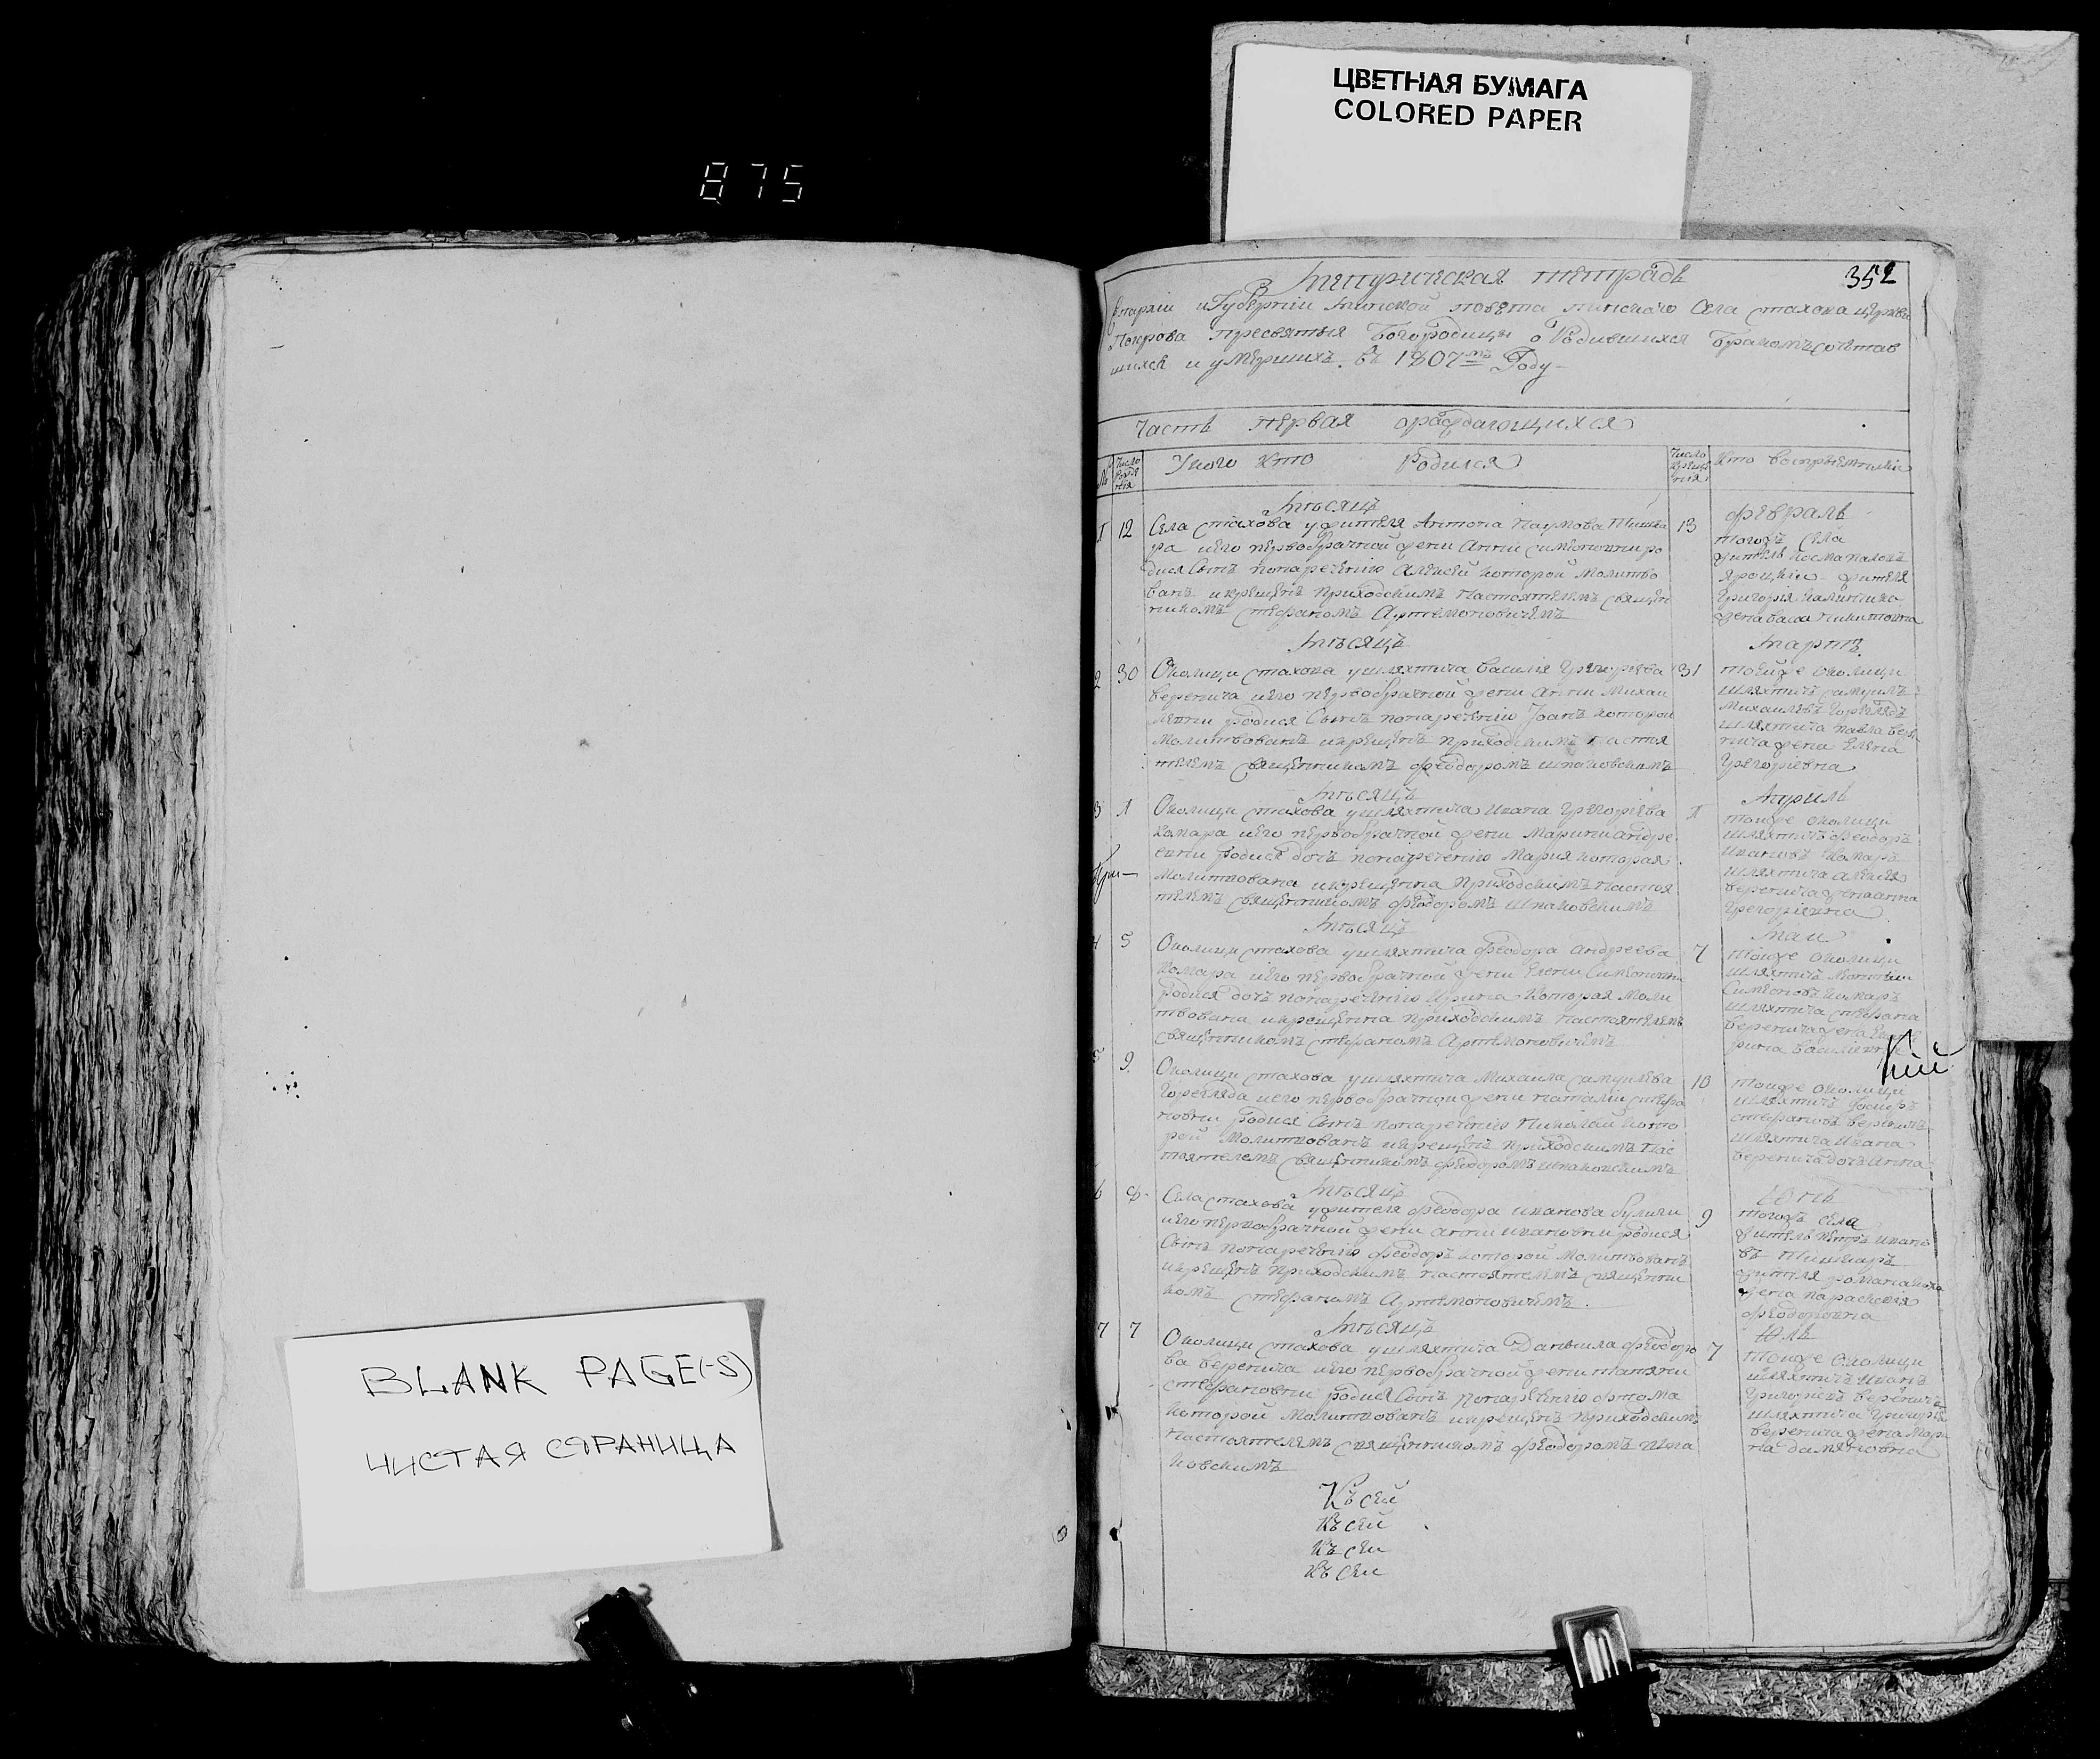 ЦВЕТНАЯ БУМАГА
COLORED PAPER
875
BLANK PAGE(-S)
ЧИСТАЯ СТРАНИЦА
352
Метрическая тетрадь
Епархіи и Губерніи Минской повѣта Пинскаго Села Стахова церкви
Покрова Пресвятыя Богородицы о Родившихся Бракомъ сочетав
шихся и умершихъ въ 1807мъ Году
Часть первая о раждающихся
№
Число Рожде нія
У кого кто Родился
Число креще нія
Кто воспріемники
Мѣсяцъ
Февраль
1 12 Села Стахова у жителя Антона Наумова Тишке
ра и его первобрачной жены Анны Симеоновны ро
дися Сынъ по нареченію Алексей которой Молитво
ванъ и крещенъ приходскимъ Настоятелемъ священ
никомъ Стефаномъ Артемоновичемъ
13
тогожъ Села
житель
жителя
Григорія
жена
Мѣсяцъ
Мартъ
2 30 Околицы Стахова у шляхтича Василія Григоріева
Веренича и его первобрачной жены Анны Михаи
ловны родися Сынъ по нареченію Іоанъ которой
Молитвованъ и крещенъ приходскимъ Настоя
телемъ священникомъ Феодоромъ Шпаковскимъ
31
тойже околицы
шляхтичъ Самуилъ
Михаиловъ Горегляд
шляхтича Павла Вере
нича жена Елена
Григоріевна
Мѣсяцъ
Априль
3 1 Околицы Стахова у шляхтича Ивана Григоріева
Комара и его первобрачной жены Марины Андре
евны родися дочъ по нареченію Мария которая
Молитвована и крещенна приходскимъ Настоя
телемъ священникомъ Феодоромъ Шпаковскимъ
1
тойже околицы
шляхтичъ Феодоръ
Ивановъ Комаръ
шляхтича Алексея
Веренича жена Анна
Григоріевна
Мѣсяцъ
Маи
4 5 Околицы Стахова у шляхтича Феодора Андреева
Комара и его первобрачной жены Елены Симеоновны
родися дочъ по нареченію Ирина которая Моли
твована и крещенна приходскимъ Настоятелемъ
священникомъ Стефаномъ Артемоновичемъ
7
тойже околицы
шляхтичъ
Симеоновъ Комаръ
шляхтича Стефана
Веренича жена Екате
рина Василіевна
5 9 Околицы Стахова у шляхтича Михаила Самуилева
Горегляда и его первобрачной жены Наталіи Стефа
новны родися Сынъ по нареченію Николай кото
рой Молитвованъ и крещенъ приходскимъ Нас
тоятелемъ священникомъ Феодоромъ Шпаковскимъ
10
тойже околицы
шляхтичъ
Стефановъ Вереничъ
шляхтича Ивана
Веренича дочъ Анна
Мѣсяцъ
Юнь
6 8 Села Стахова у жителя Феодора Иванова
и его первобрачной жены Анны Ивановны родися
Сынъ по нареченію Феодоръ которой Молитвованъ
и крещенъ приходскимъ Настоятелемъ священни
комъ Стефаномъ Артемоновичемъ
9
тогожъ Села
житель Петръ Ивано
въ Тишкеръ
жителя Романа
жена Параскевія
Феодоровна
Мѣсяцъ
Юль
7 7 Околицы Стахова у шляхтича Даніила Феодоро
ва Веренича и его первобрачной жены Татяны
Стефановны родися Сынъ по нареченію Фтома
которой Молитвованъ и крещенъ приходскимъ
Настоятелемъ священникомъ Феодоромъ Шпа
ковскимъ
7
тойже околицы
шляхтичъ Иванъ
Григоріевъ Вереничъ
шляхтича Григорія
Веренича жена Мари
на Дамяновна
Къ сей
Къ сей
Къ сеи
Къ сеи